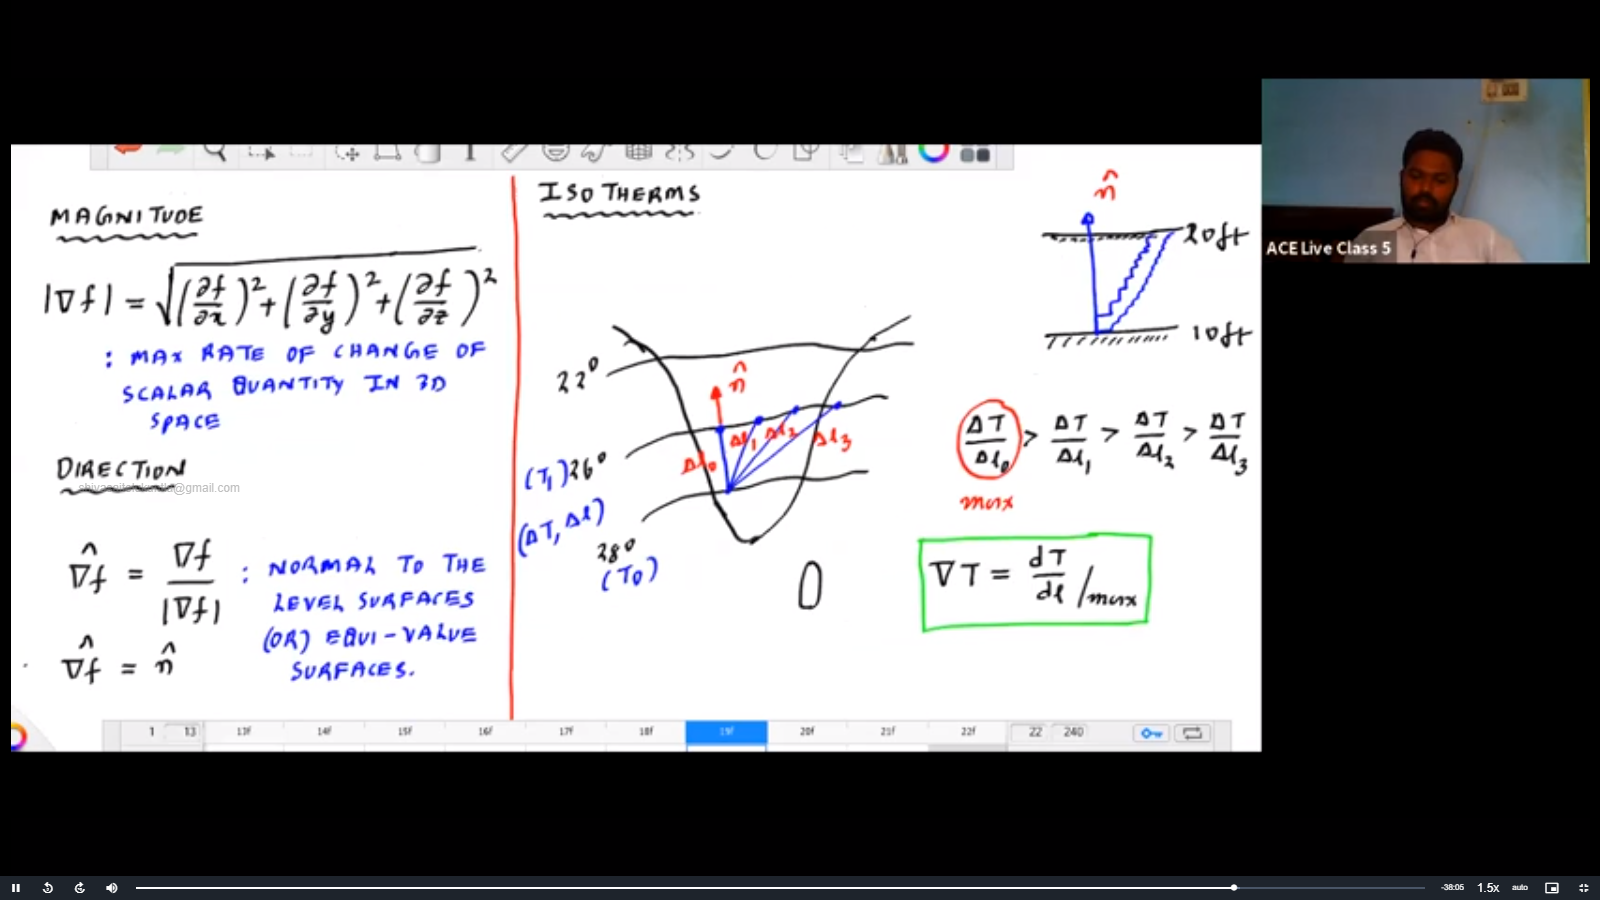 MAGNITUDE
|∇f| = √(∂f/∂x)² + (∂f/∂y)² + (∂f/∂z)²
: MAX RATE OF CHANGE OF
SCALAR QUANTITY IN 3D
SPACE
DIRECTION
∇̂f = ∇f / |∇f|
: NORMAL TO THE
LEVEL SURFACES
(OR) EQUI-VALUE
SURFACES.
∇̂f = n̂
ISOTHERMS
22⁰
n̂
Δl₀ Δl₁ Δl₂ Δl₃
(T₁) 26⁰
(ΔT, Δl)
28⁰
(T₀)
n̂
20ft
10ft
ΔT/Δl₀ > ΔT/Δl₁ > ΔT/Δl₂ > ΔT/Δl₃
max
∇T = dT/dl /max
ACE Live Class 5
1 13 13f 14f 15f 16f 17f 18f 19f 20f 21f 22f 22 240
-38:05 1.5x auto